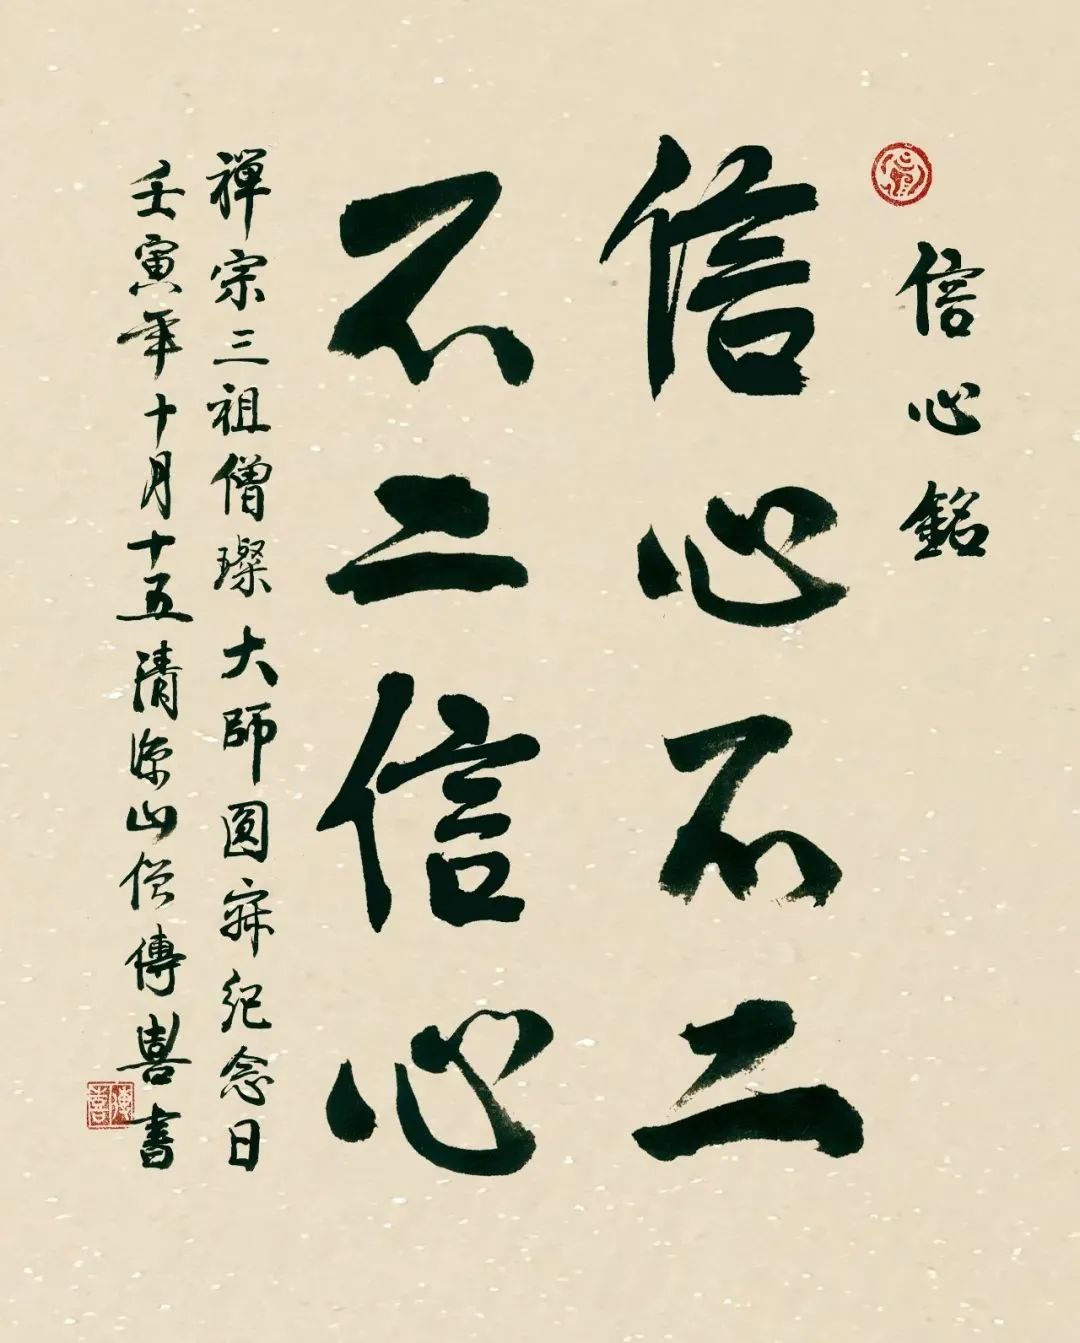 信心銘
信心不二
不二信心
禅宗三祖僧璨大師圆寂紀念日
壬寅年十月十五清源山僧傳喜書
傳喜